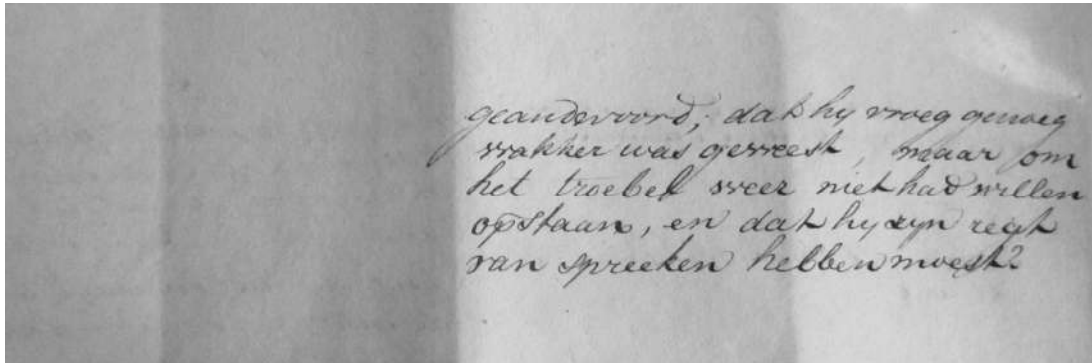 geandwoord, dat hy vroeg genoeg
wakker was geweest, maar om
het troebel weer niet had willen
opstaan, en dat hy zyn regt
van spreeken hebben moest?